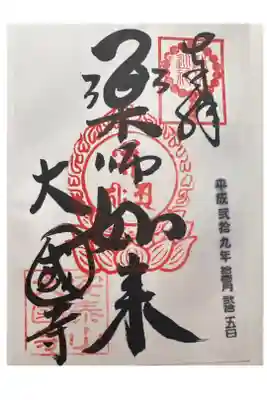 奉拝
平成弐拾九年
弐拾五日
薬師如来
大國寺